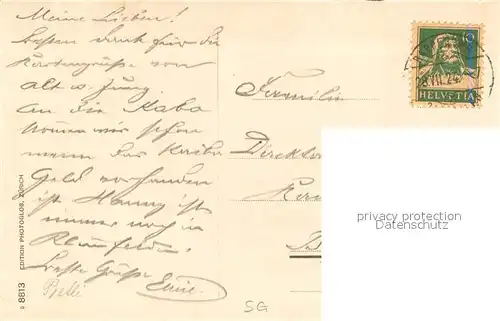 Meine Lieben!
Besten Dank für die
Kartengrüsse von
alt u. jung.
An die Kaba
können wir schon
wenn das Kaiba
Geld vorhanden
ist Hanny ist
immer noch in
Rheinfelden.
Beste Grüsse
Emil
Familie
Direktor
SG
HELVETIA
10
privacy protection
Datenschutz
8813
EDITION PHOTOGLOB, ZÜRICH